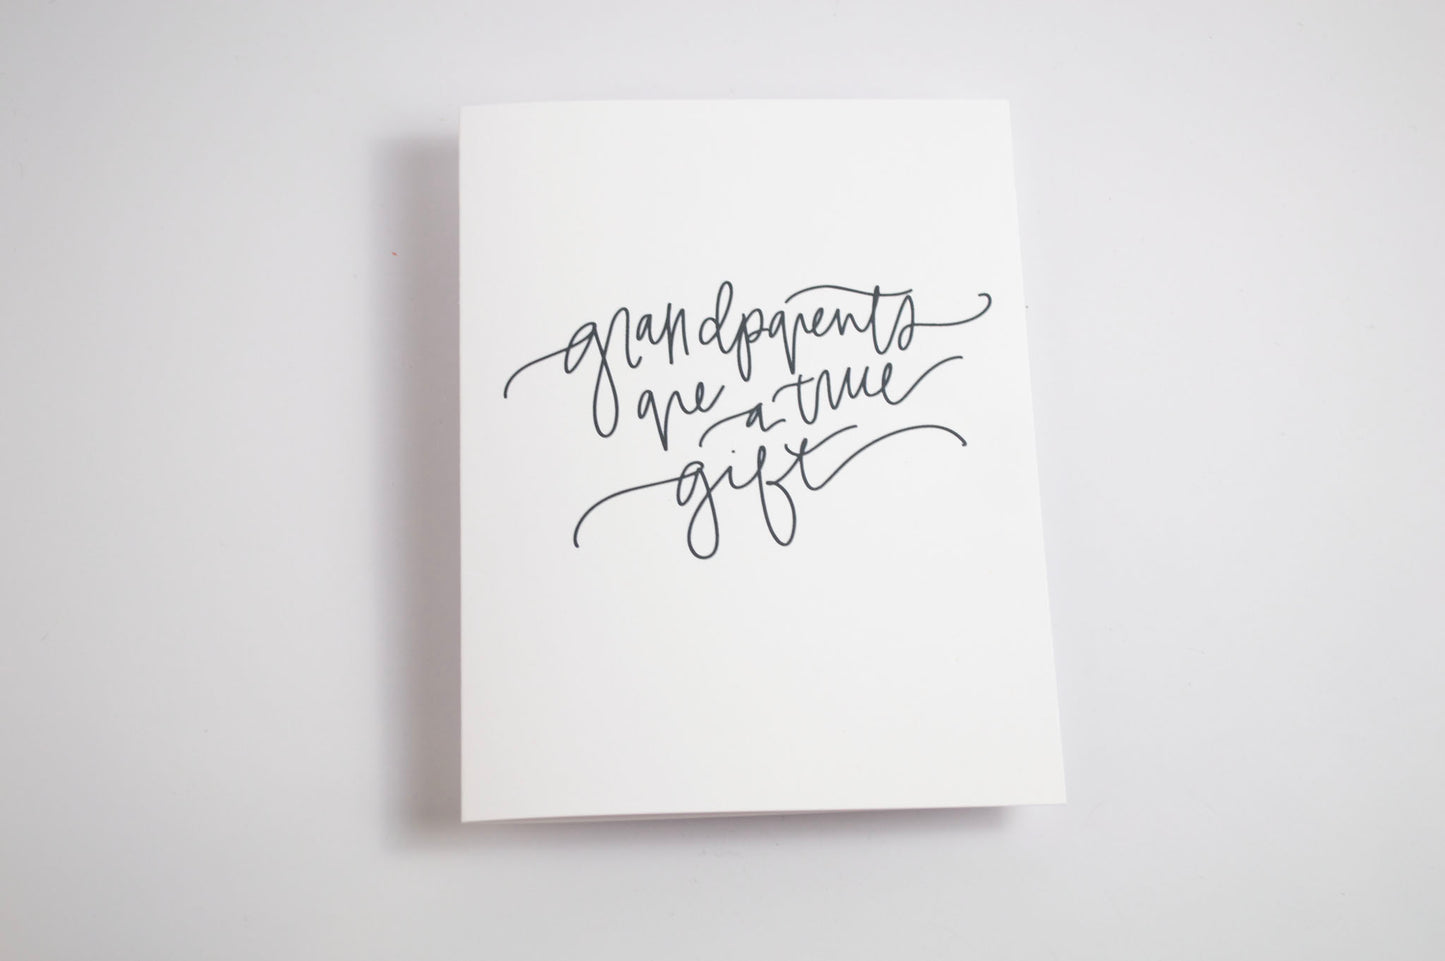 grandparents
are a true
gift